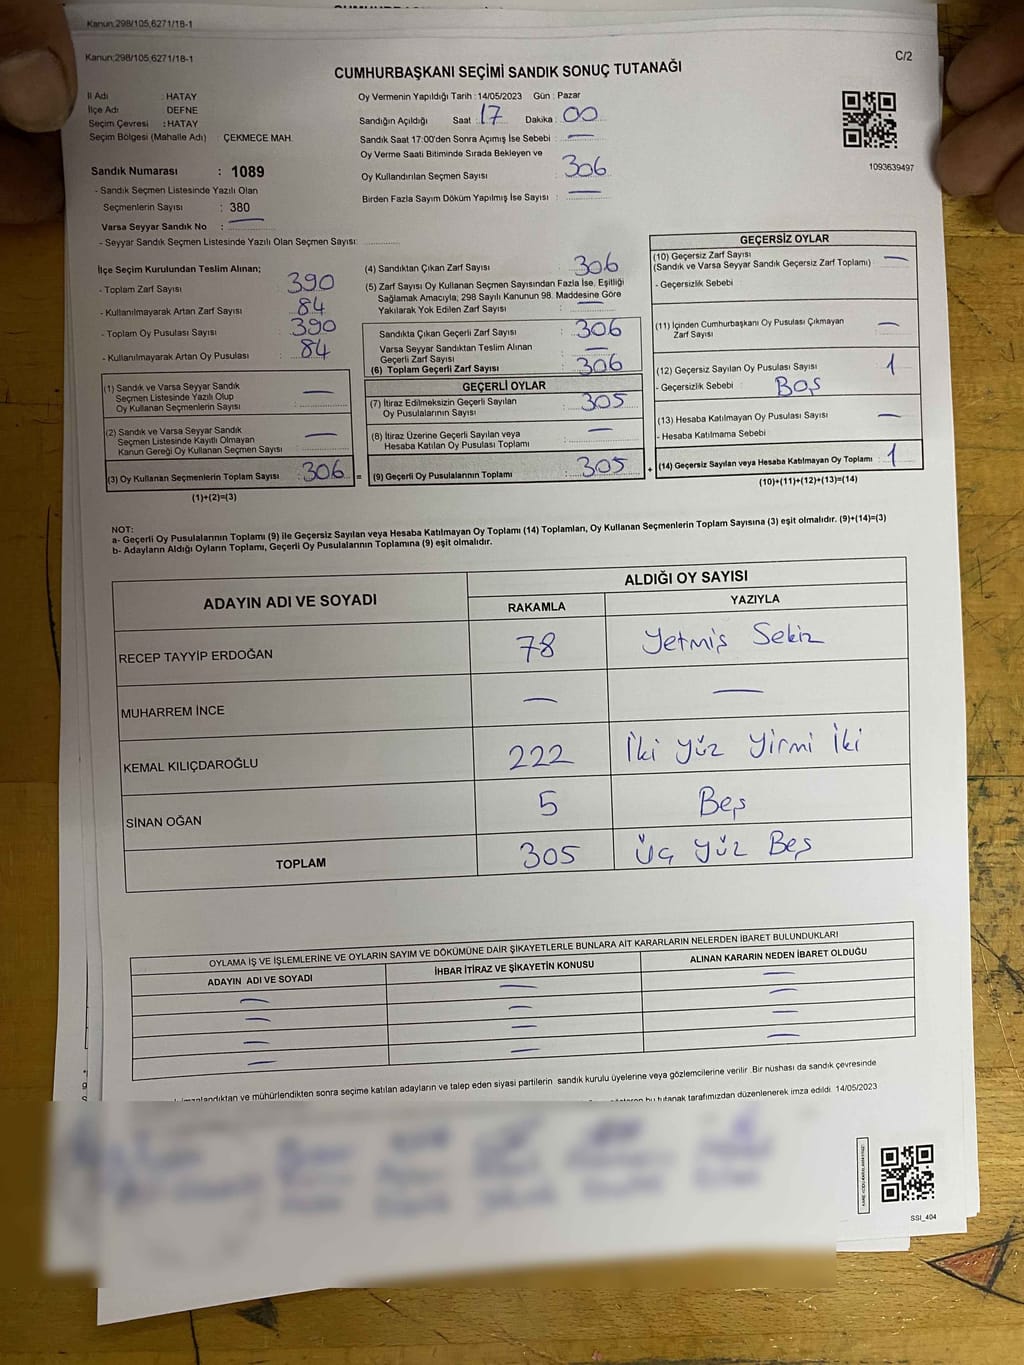 Kanun;298/105,6271/18-1
Kanun;298/105,6271/18-1
C/2
CUMHURBAŞKANI SEÇİMİ SANDIK SONUÇ TUTANAĞI
İl Adı : HATAY
İlçe Adı : DEFNE
Seçim Çevresi : HATAY
Seçim Bölgesi (Mahalle Adı) : ÇEKMECE MAH.
Sandık Numarası : 1089
- Sandık Seçmen Listesinde Yazılı Olan
Seçmenlerin Sayısı : 380
Varsa Seyyar Sandık No : —
- Seyyar Sandık Seçmen Listesinde Yazılı Olan Seçmen Sayısı:
Oy Vermenin Yapıldığı Tarih : 14/05/2023 Gün : Pazar
Sandığın Açıldığı Saat : 17 Dakika : 00
Sandık Saat 17:00'den Sonra Açımış İse Sebebi : —
Oy Verme Saati Bitiminde Sırada Bekleyen ve
Oy Kullandırılan Seçmen Sayısı : 306
Birden Fazla Sayım Döküm Yapılmış İse Sayısı : —
1093639497
İlçe Seçim Kurulundan Teslim Alınan;
- Toplam Zarf Sayısı : 390
- Kullanılmayarak Artan Zarf Sayısı : 84
- Toplam Oy Pusulası Sayısı : 390
- Kullanılmayarak Artan Oy Pusulası : 84
(1) Sandık ve Varsa Seyyar Sandık
Seçmen Listesinde Yazılı Olup
Oy Kullanan Seçmenlerin Sayısı : —
(2) Sandık ve Varsa Seyyar Sandık
Seçmen Listesinde Kayıtlı Olmayan
Kanun Gereği Oy Kullanan Seçmen Sayısı : —
(3) Oy Kullanan Seçmenlerin Toplam Sayısı : 306 =
(1)+(2)=(3)
(4) Sandıktan Çıkan Zarf Sayısı : 306
(5) Zarf Sayısı Oy Kullanan Seçmen Sayısından Fazla İse, Eşitliği
Sağlamak Amacıyla; 298 Sayılı Kanunun 98. Maddesine Göre
Yakılarak Yok Edilen Zarf Sayısı : —
Sandıkta Çıkan Geçerli Zarf Sayısı : 306
Varsa Seyyar Sandıktan Teslim Alınan
Geçerli Zarf Sayısı : —
(6) Toplam Geçerli Zarf Sayısı : 306
GEÇERLİ OYLAR
(7) İtiraz Edilmeksizin Geçerli Sayılan
Oy Pusulalarının Sayısı : 305
(8) İtiraz Üzerine Geçerli Sayılan veya
Hesaba Katılan Oy Pusulası Toplamı : —
(9) Geçerli Oy Pusulalarının Toplamı : 305 +
GEÇERSİZ OYLAR
(10) Geçersiz Zarf Sayısı
(Sandık ve Varsa Seyyar Sandık Geçersiz Zarf Toplamı) : —
- Geçersizlik Sebebi
(11) İçinden Cumhurbaşkanı Oy Pusulası Çıkmayan
Zarf Sayısı : —
(12) Geçersiz Sayılan Oy Pusulası Sayısı : 1
- Geçersizlik Sebebi : Boş
(13) Hesaba Katılmayan Oy Pusulası Sayısı : —
- Hesaba Katılmama Sebebi
(14) Geçersiz Sayılan veya Hesaba Katılmayan Oy Toplamı : 1
(10)+(11)+(12)+(13)=(14)
NOT:
a- Geçerli Oy Pusulalarının Toplamı (9) ile Geçersiz Sayılan veya Hesaba Katılmayan Oy Toplamı (14) Toplamları, Oy Kullanan Seçmenlerin Toplam Sayısına (3) eşit olmalıdır. (9)+(14)=(3)
b- Adayların Aldığı Oyların Toplamı, Geçerli Oy Pusulalarının Toplamına (9) eşit olmalıdır.
ADAYIN ADI VE SOYADI
ALDIĞI OY SAYISI
RAKAMLA YAZIYLA
RECEP TAYYİP ERDOĞAN 78 Yetmiş Sekiz
MUHARREM İNCE — —
KEMAL KILIÇDAROĞLU 222 İki yüz yirmi iki
SİNAN OĞAN 5 Beş
TOPLAM 305 üç yüz Beş
OYLAMA İŞ VE İŞLEMLERİNE VE OYLARIN SAYIM VE DÖKÜMÜNE DAİR ŞİKAYETLERLE BUNLARA AİT KARARLARIN NELERDEN İBARET BULUNDUKLARI
ADAYIN ADI VE SOYADI İHBAR İTİRAZ VE ŞİKAYETİN KONUSU ALINAN KARARIN NEDEN İBARET OLDUĞU
— — —
— — —
— — —
— — —
ve mühürlendikten sonra seçime katılan adayların ve talep eden siyasi partilerin sandık kurulu üyelerine veya gözlemcilerine verilir. Bir nüshası da sandık çevresinde
bu tutanak tarafımızdan düzenlenerek imza edildi. 14/05/2023
SSI_404